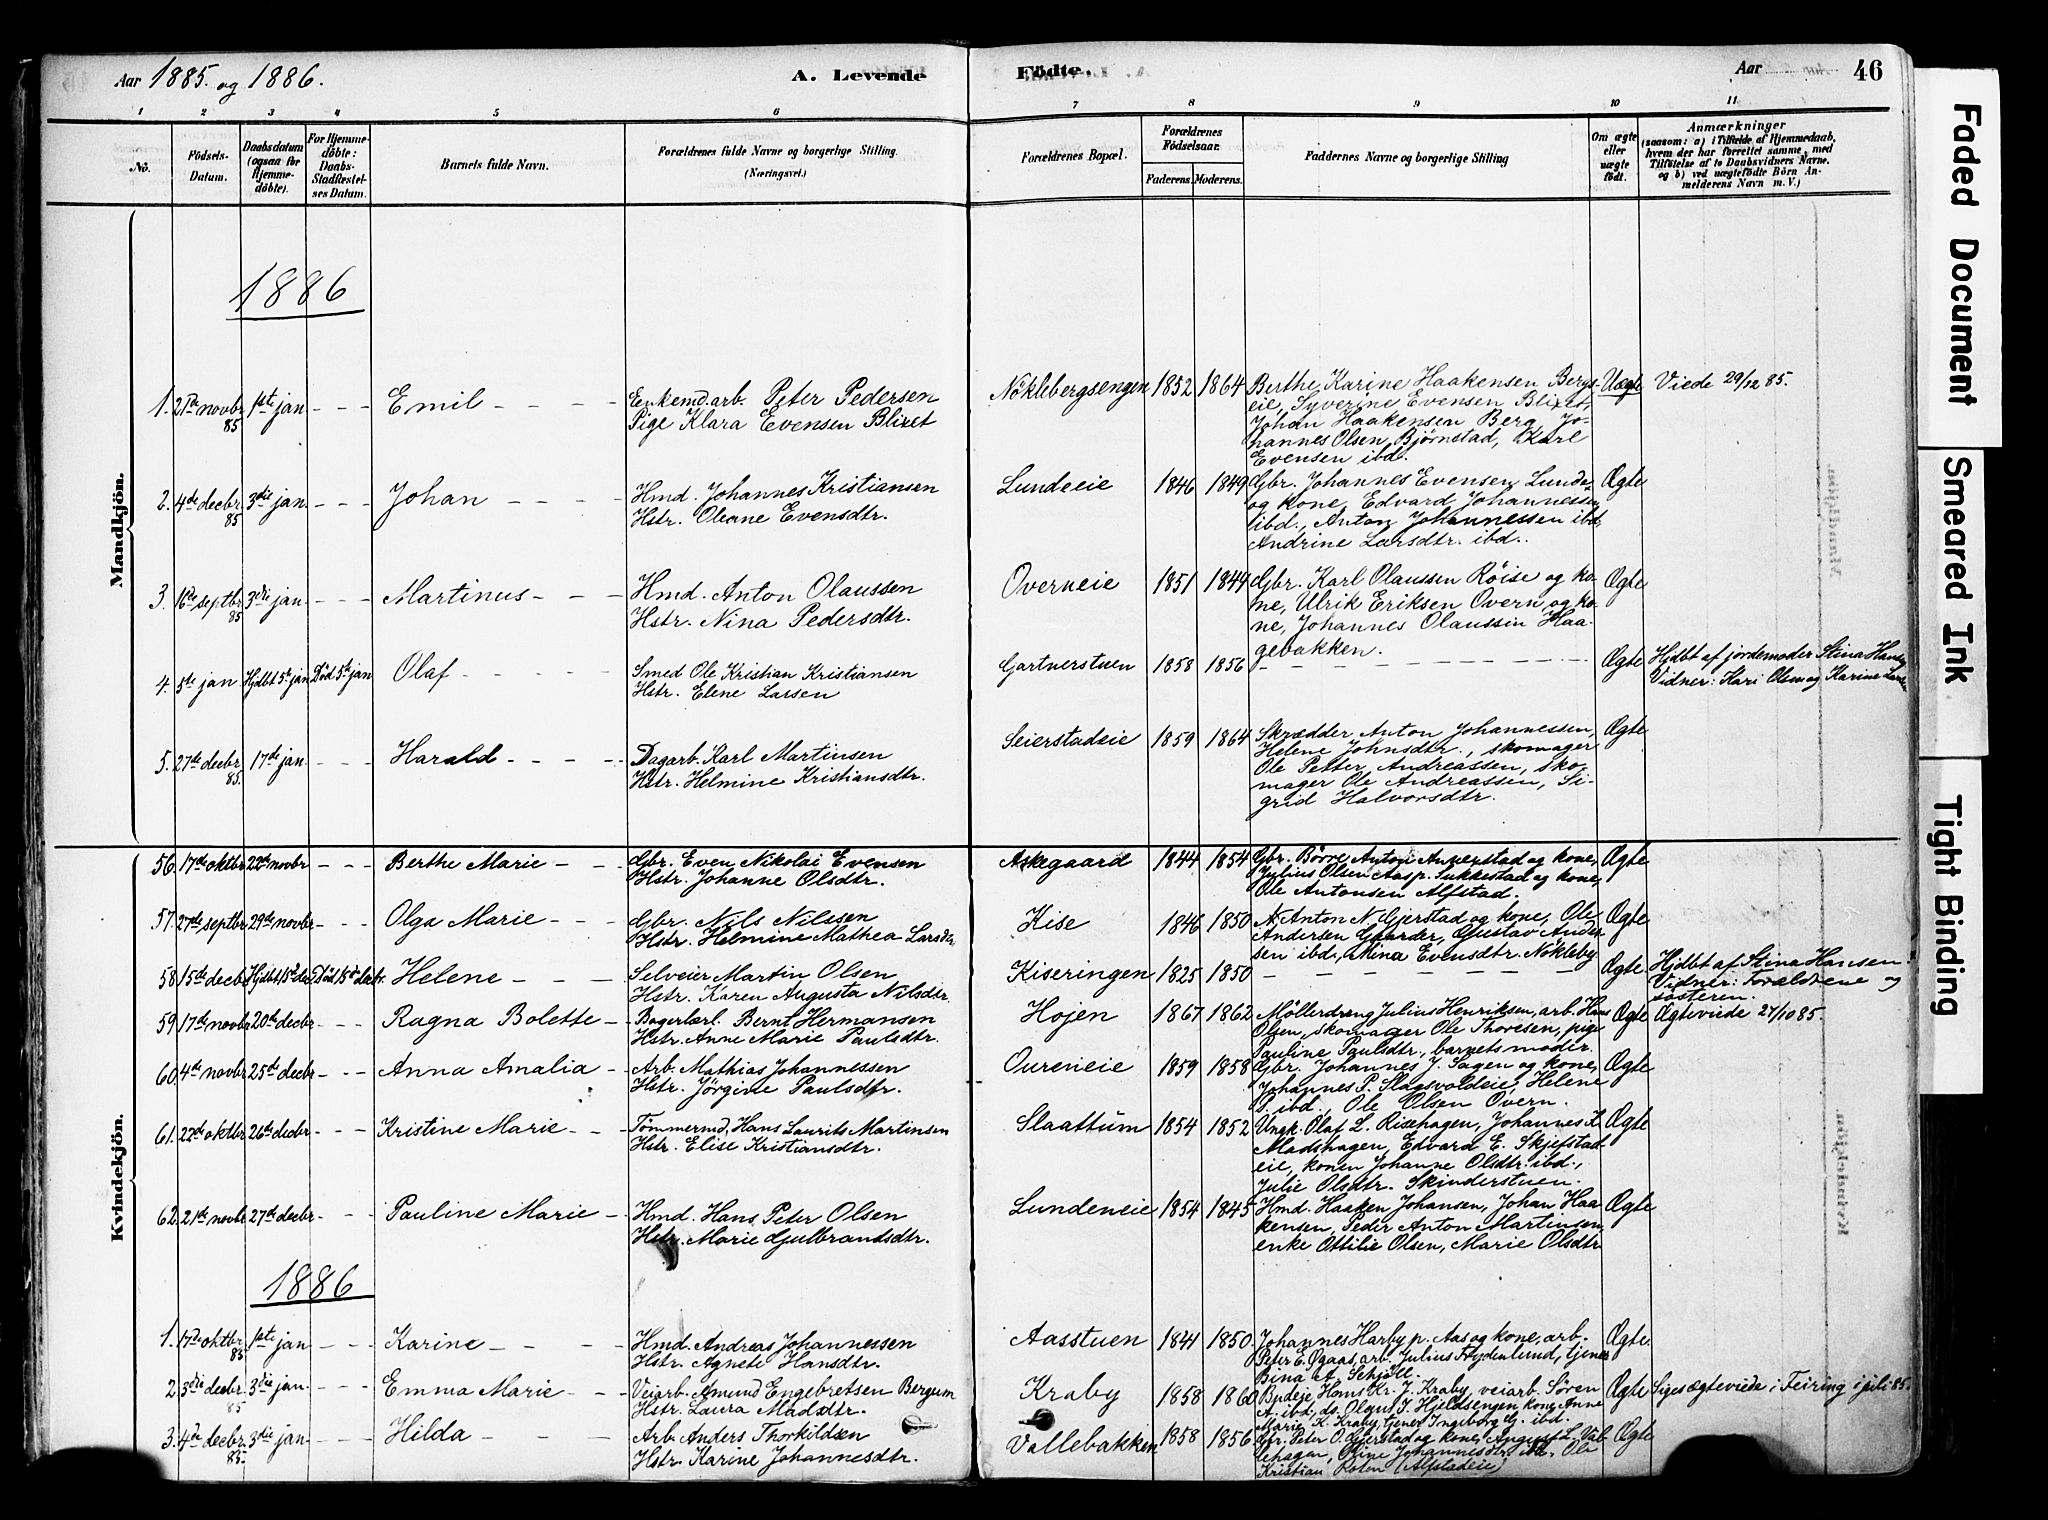 Aar 1885. og 1886.
A. Levende
Födte.
Aar
46
1
2
3
4
5
6
7
8
9
10
11
No.
Födsels-Datum.
Daabsdatum (ogsaa for Hjemme-döbte).
For Hjemme-döbte: Daabs-Stadfæstelses Datum.
Barnets fulde Navn.
Forældrenes fulde Navne og borgerlige Stilling
(Næringsvei.)
Forældrenes Bopæl.
Forældrenes Födselsaar.
Faderens.
Moderens.
Faddernes Navne og borgerlige Stilling
Om ægte eller uægte födt.
Anmærkninger
(saasom: a) i Tilfælde af Hjemmedaab, hvem der har forrettet samme, med Tilföielse af to Daabsvidners Navne, og b) ved uægtefödte Börn Anmelderens Navn m. V.)
Mandkjön.
1886
1. 21de novbr 85 1ste jan - - - Emil - - - -
Enkemd. arb. Peter Pedersen
Pige Klara Evensen Blixet
Nöklebergsengen 1852 1864
Berthe Karine Haakensen Bergs-
eie, Syverine Evensen Blixet,
Johan Haakensen Berg, Jo-
hannes Olsen Bjørnstad, Karl
Evensen ibd.
Uægte Viede 29/12 85.
2. 4de decbr 85 3die jan - - - Johan - - - -
Hmd. Johannes Kristiansen
Hstr. Oleane Evensdtr.
Lundeeie 1846 1849
Gbr. Johannes Evensen Lunde
og kone, Edvard Johannessen
ibd., Anton Johannessen ibd,
Andrine Larsdtr. ibd..
Ægte
3. 16de septbr 85 3die jan - - - Martinus - - -
Hmd. Anton Olaussen
Hstr. Nina Pedersdtr.
Overneie 1851 1844
Gbr. Karl Olaussen Röise og ko-
ne, Ulrik Eriksen Overn og ko-
ne, Johannes Olaussen Haa-
gebakken.
Ægte
4. 5te jan Hjdbt 5te jan Död 5te jan Olaf - - - -
Smed Ole Kristian Kristiansen
Hstr. Elene Larsen
Gartnerstuen 1858 1856 - - - - - -
Ægte Hjdbt af jordemoder Stina Hansen
Vidner: Kari Olsen og Karine Larsen
5. 27de decbr 85. 17de jan - - - Harald - - - -
Dagarb. Karl Martinsen
Hstr. Helmine Kristiansdtr.
Seierstadeie 1859 1864
Skrædder Anton Johannessen,
Helene Johnsdtr., skomager
Ole Petter Andreassen, sko-
mager Ole Andreassen, Si-
grid Halvorsdtr.
Ægte
Kvindekjön.
56. 17de oktbr 22de novbr - - - Berthe Marie - -
Gbr. Even Nikolai Evensen
Hstr. Johanne Olsdtr.
Askegaard 1844 1854
Gbr. Börre Anton Annerstad og kone,
Julius Olsen Aas p. Sukkestad og kone,
Ole Antonsen Alfstad.
Ægte
57. 27de septbr 29de novbr - - - Olga Marie - - -
Gbr. Nils Nilssen
Hstr. Helmine Mathea Larsdtr
Kise 1846 1850
A. Anton N. Gjerstad og kone, Ole
Andersen Gaarder, Gustav Ander-
sen ibd., Mina Evensdtr. Nökleby
Ægte
58 15de decbr Hjdbt 15de decbr Död 15de decbr. Helene - - -
Selveier Martin Olsen
Hstr. Karen Augusta Nilsdtr.
Kiseringen 1825 1850 - - - - -
Ægte Hjdbt af Stina Hansen.
Vidner: Forældrene og
søsteren.
59 17de novbr 20de decbr - - - Ragna Bolette -
Bagerlærl. Bernt Hermansen
Hstr. Anne Marie Paulsdtr.
Hojen 1867 1862
Möllerdreng Julius Henriksen, arb. Hans
Olsen, skomager Ole Thoresen, pige
Pauline Paulsdtr., barnets moder.
Ægte Ægteviede 27/10 85.
60. 4de novbr 25de decbr - - - Anna Amalia -
Arb. Mathias Johannessen
Hstr. Jörgine Paulsdtr.
Oureneie 1859 1858
Gbr. Johannes J. Sagen og kone,
Johannes P. Slagsvoldeie, Helene
S. ibd., Ole Olsen Overn.
Ægte
61. 22de oktbr 26de decbr - - - Kristine Marie -
Tömmermd. Hans Laurits Martinsen
Hstr. Elise Kristiansdtr.
Slaattum 1854 1852
Ungk. Olaf L. Risehagen, Johannes K.
Madshagen, Edvard E. Skjefstad-
eie, konen Johanne Olsdtr. ibd.,
Julie Olsdtr. Skinderstuen.
Ægte
62. 21de novbr 27de decbr - - - Pauline Marie -
Hmd. Hans Peter Olsen
Hstr. Marie Gulbrandsdtr.
Lundeneie 1854 1845
Hmd. Haaken Johansen, Johan Haa-
kensen, Peder Anton Martinsen,
enke Ottilie Olsen, Marie Olsdtr
Ægte
1886
1. 17de oktbr 85 1ste jan - - - Karine - - - -
Hmd. Andreas Johannessen
Hstr. Agnete Hansdtr.
Aasstuen 1841 1850.
Johannes Harby p. Aas og kone, arb.
Peter E. Øgaas, arb. Julius Frydenlund, tjener
Bina A. Schjöll.
Ægte.
2. 3die decbr 85 3die jan - - - Emma Marie - -
Veiarb. Amund Engebretsen Bergum
Hstr. Laura Madsdtr.
Kraby 1858 1860
Budeje Hans Kr. J. Kraby, veiarb. Sören
A. ibd., ds. Olaus J. Hjeldsengen, kone Anne
Marie K. Kraby, tjener Ingeborg G. ibd.
Ægte Siges ægteviede i Feiring i juli 85.
3. 4de decbr. 85. 3die jan - - - Hilda - - - -
Arb. Anders Thorkildsen
Hstr. Karine Johannesdtr.
Vallebakken 1858 1856
Gbr. Peter O. Gjerstad og kone, August L. Val-
lehagen, Oline Johannesdtr. ibd. Ole
Kristian Roten (Alfstadeie)
Ægte
Faded Document
Smeared Ink
Tight Binding